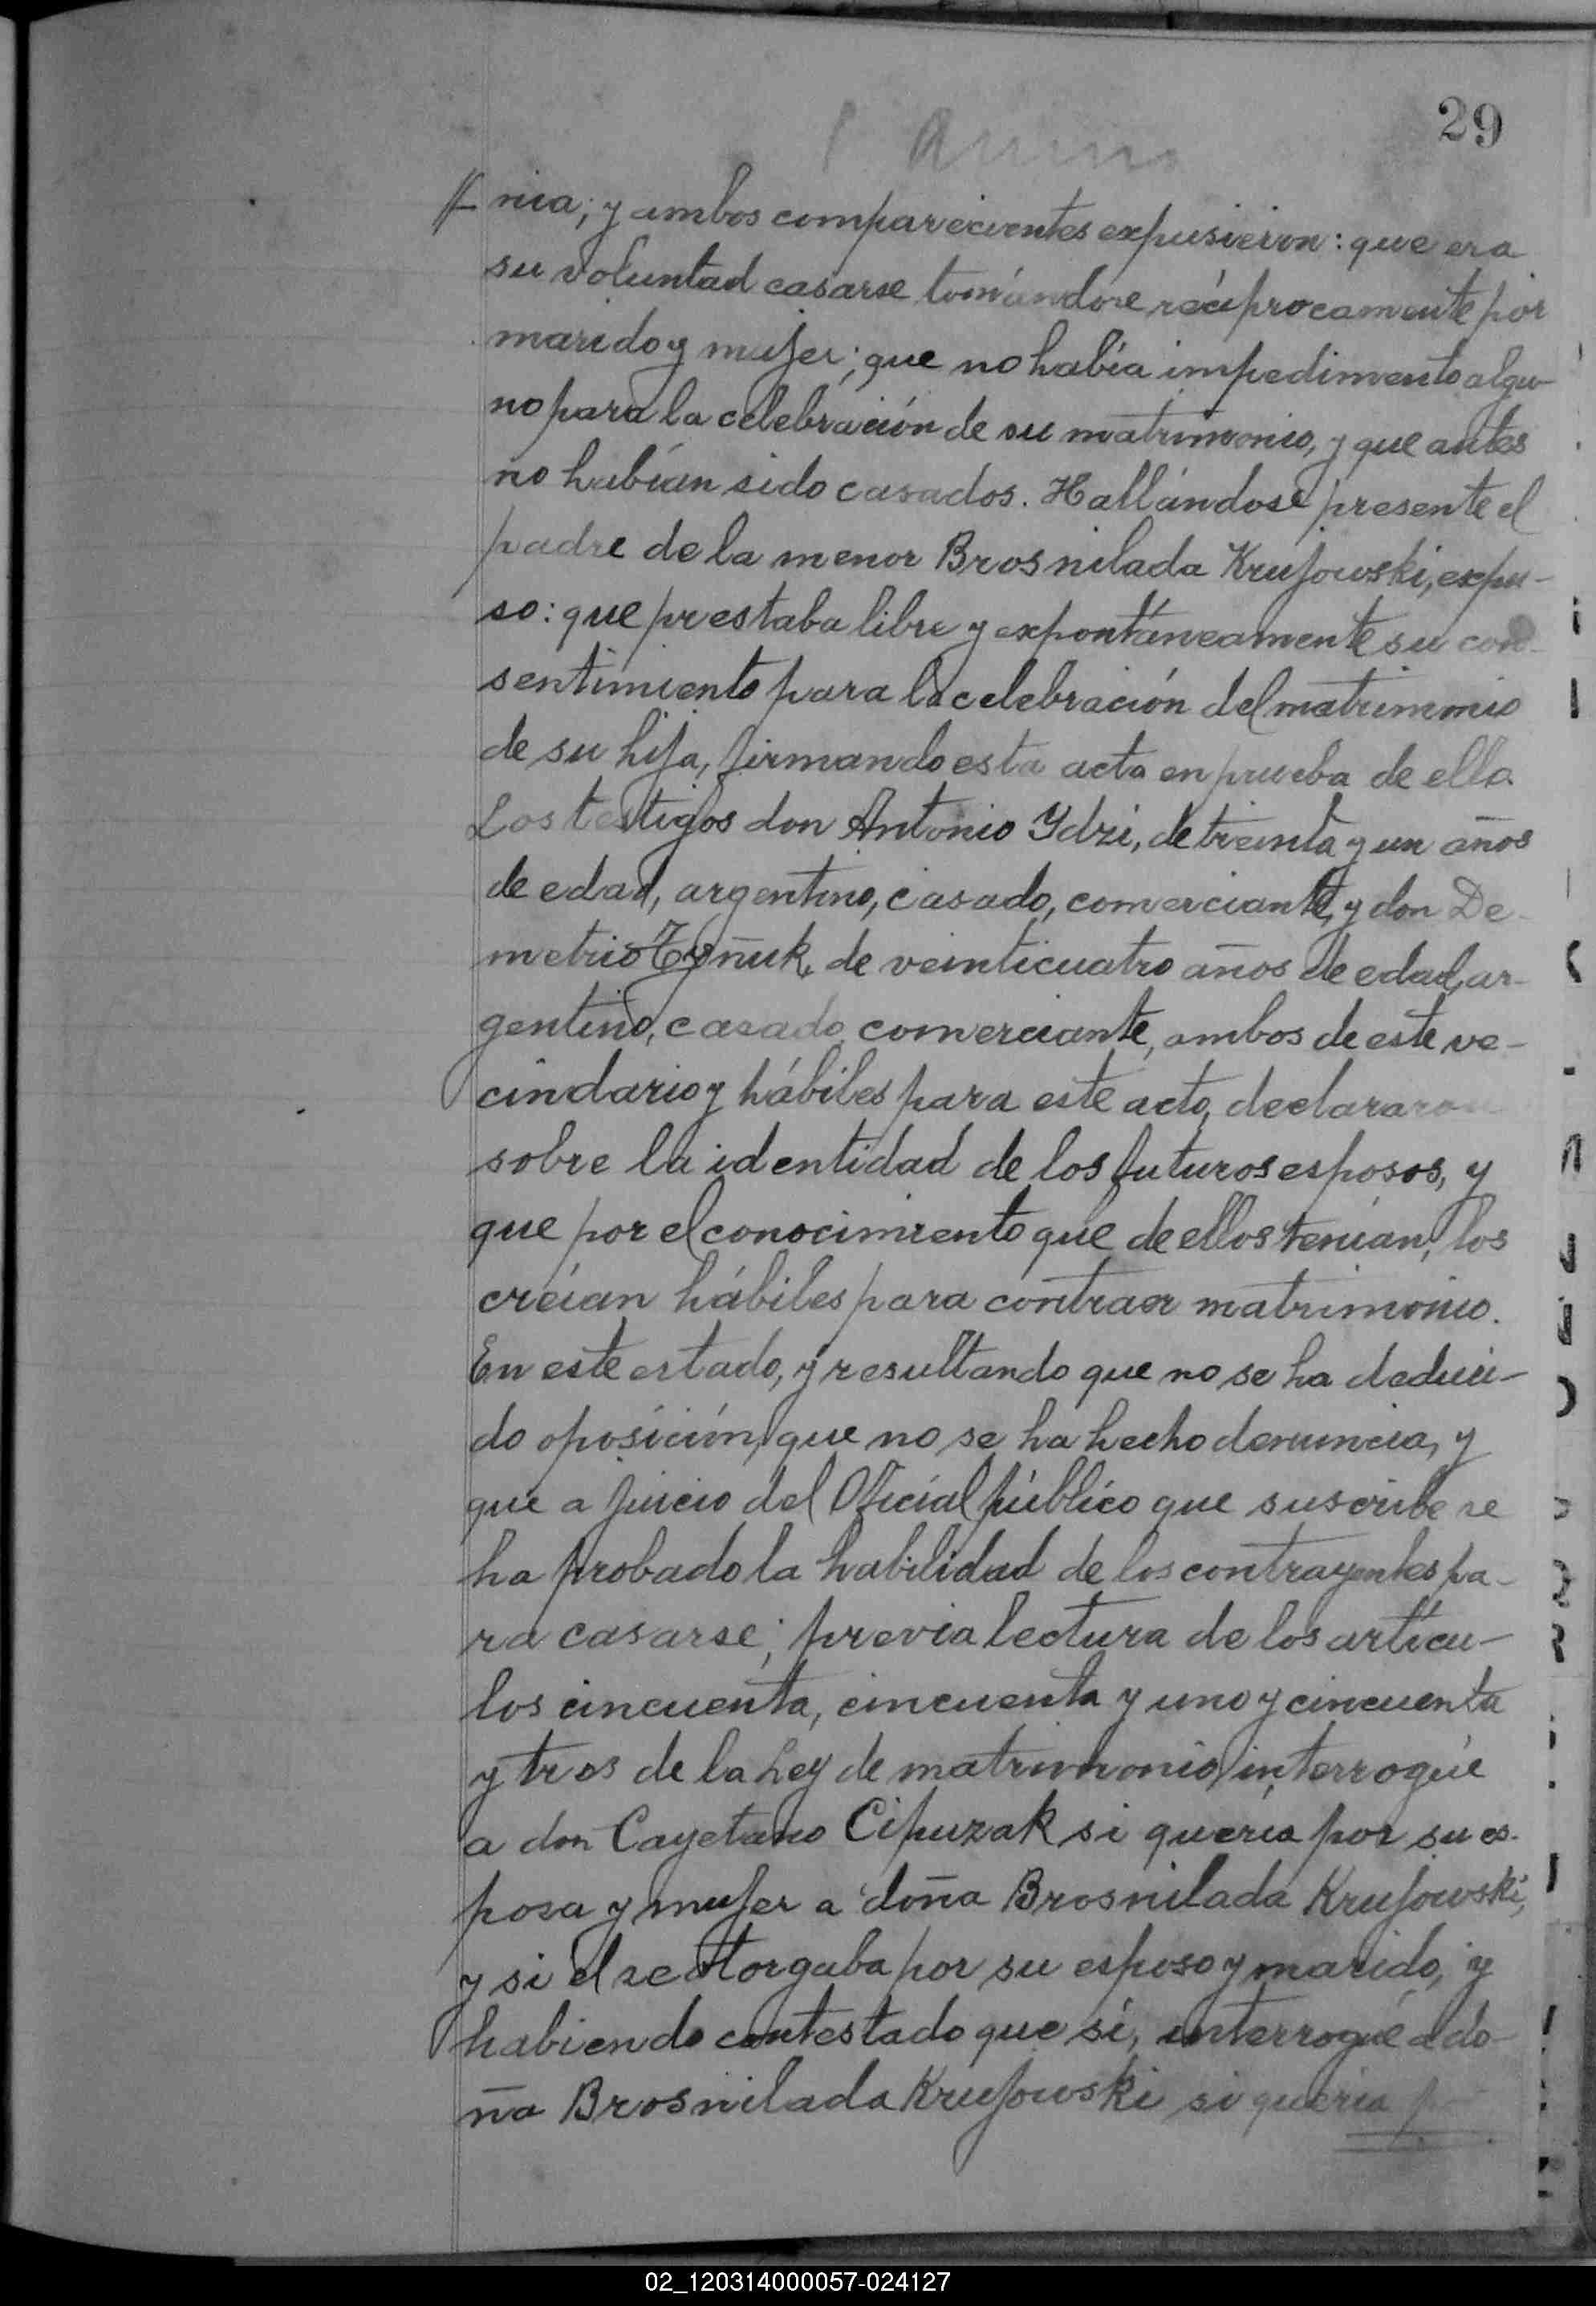 29
nia; y ambos comparecientes expusieron: que era
su voluntad casarse tomándose recíprocamente por
marido y mujer; que no había impedimento algu-
no para la celebración de su matrimonio, y que antes
no habían sido casados. Hallándose presente el
padre de la menor Brosnilada Krujowski, expu-
so: que prestaba libre y expontáneamente su con-
sentimiento para la celebración del matrimonio
de su hija, firmando esta acta en prueba de ello.
Los testigos don Antonio Ydzi, de treinta y un años
de edad, argentino, casado, comerciante, y don De-
metrio de veinticuatro años de edad, ar-
gentino, casado, comerciante, ambos de este ve-
cindario y hábiles para este acto, declararon
sobre la identidad de los futuros esposos, y
que por el conocimiento que de ellos tenían, los
creían hábiles para contraer matrimonio.
En este estado, y resultando que no se ha deduci-
do oposición, que no se ha hecho denuncia, y
que a juicio del Oficial público que suscribe se
ha probado la habilidad de los contrayentes pa-
ra casarse; previa lectura de los artícu-
los cincuenta, cincuenta y uno y cincuenta
y tres de la Ley de matrimonio, interrogué
a don Cayetano Cipuzak si quería por su es-
posa y mujer a doña Brosnilada Krujowski,
y si el se otorgaba por su esposo y marido, y
habiendo contestado que sí, interrogué a do-
ña Brosnilada Krujowski si quería
02_120314000057-024127